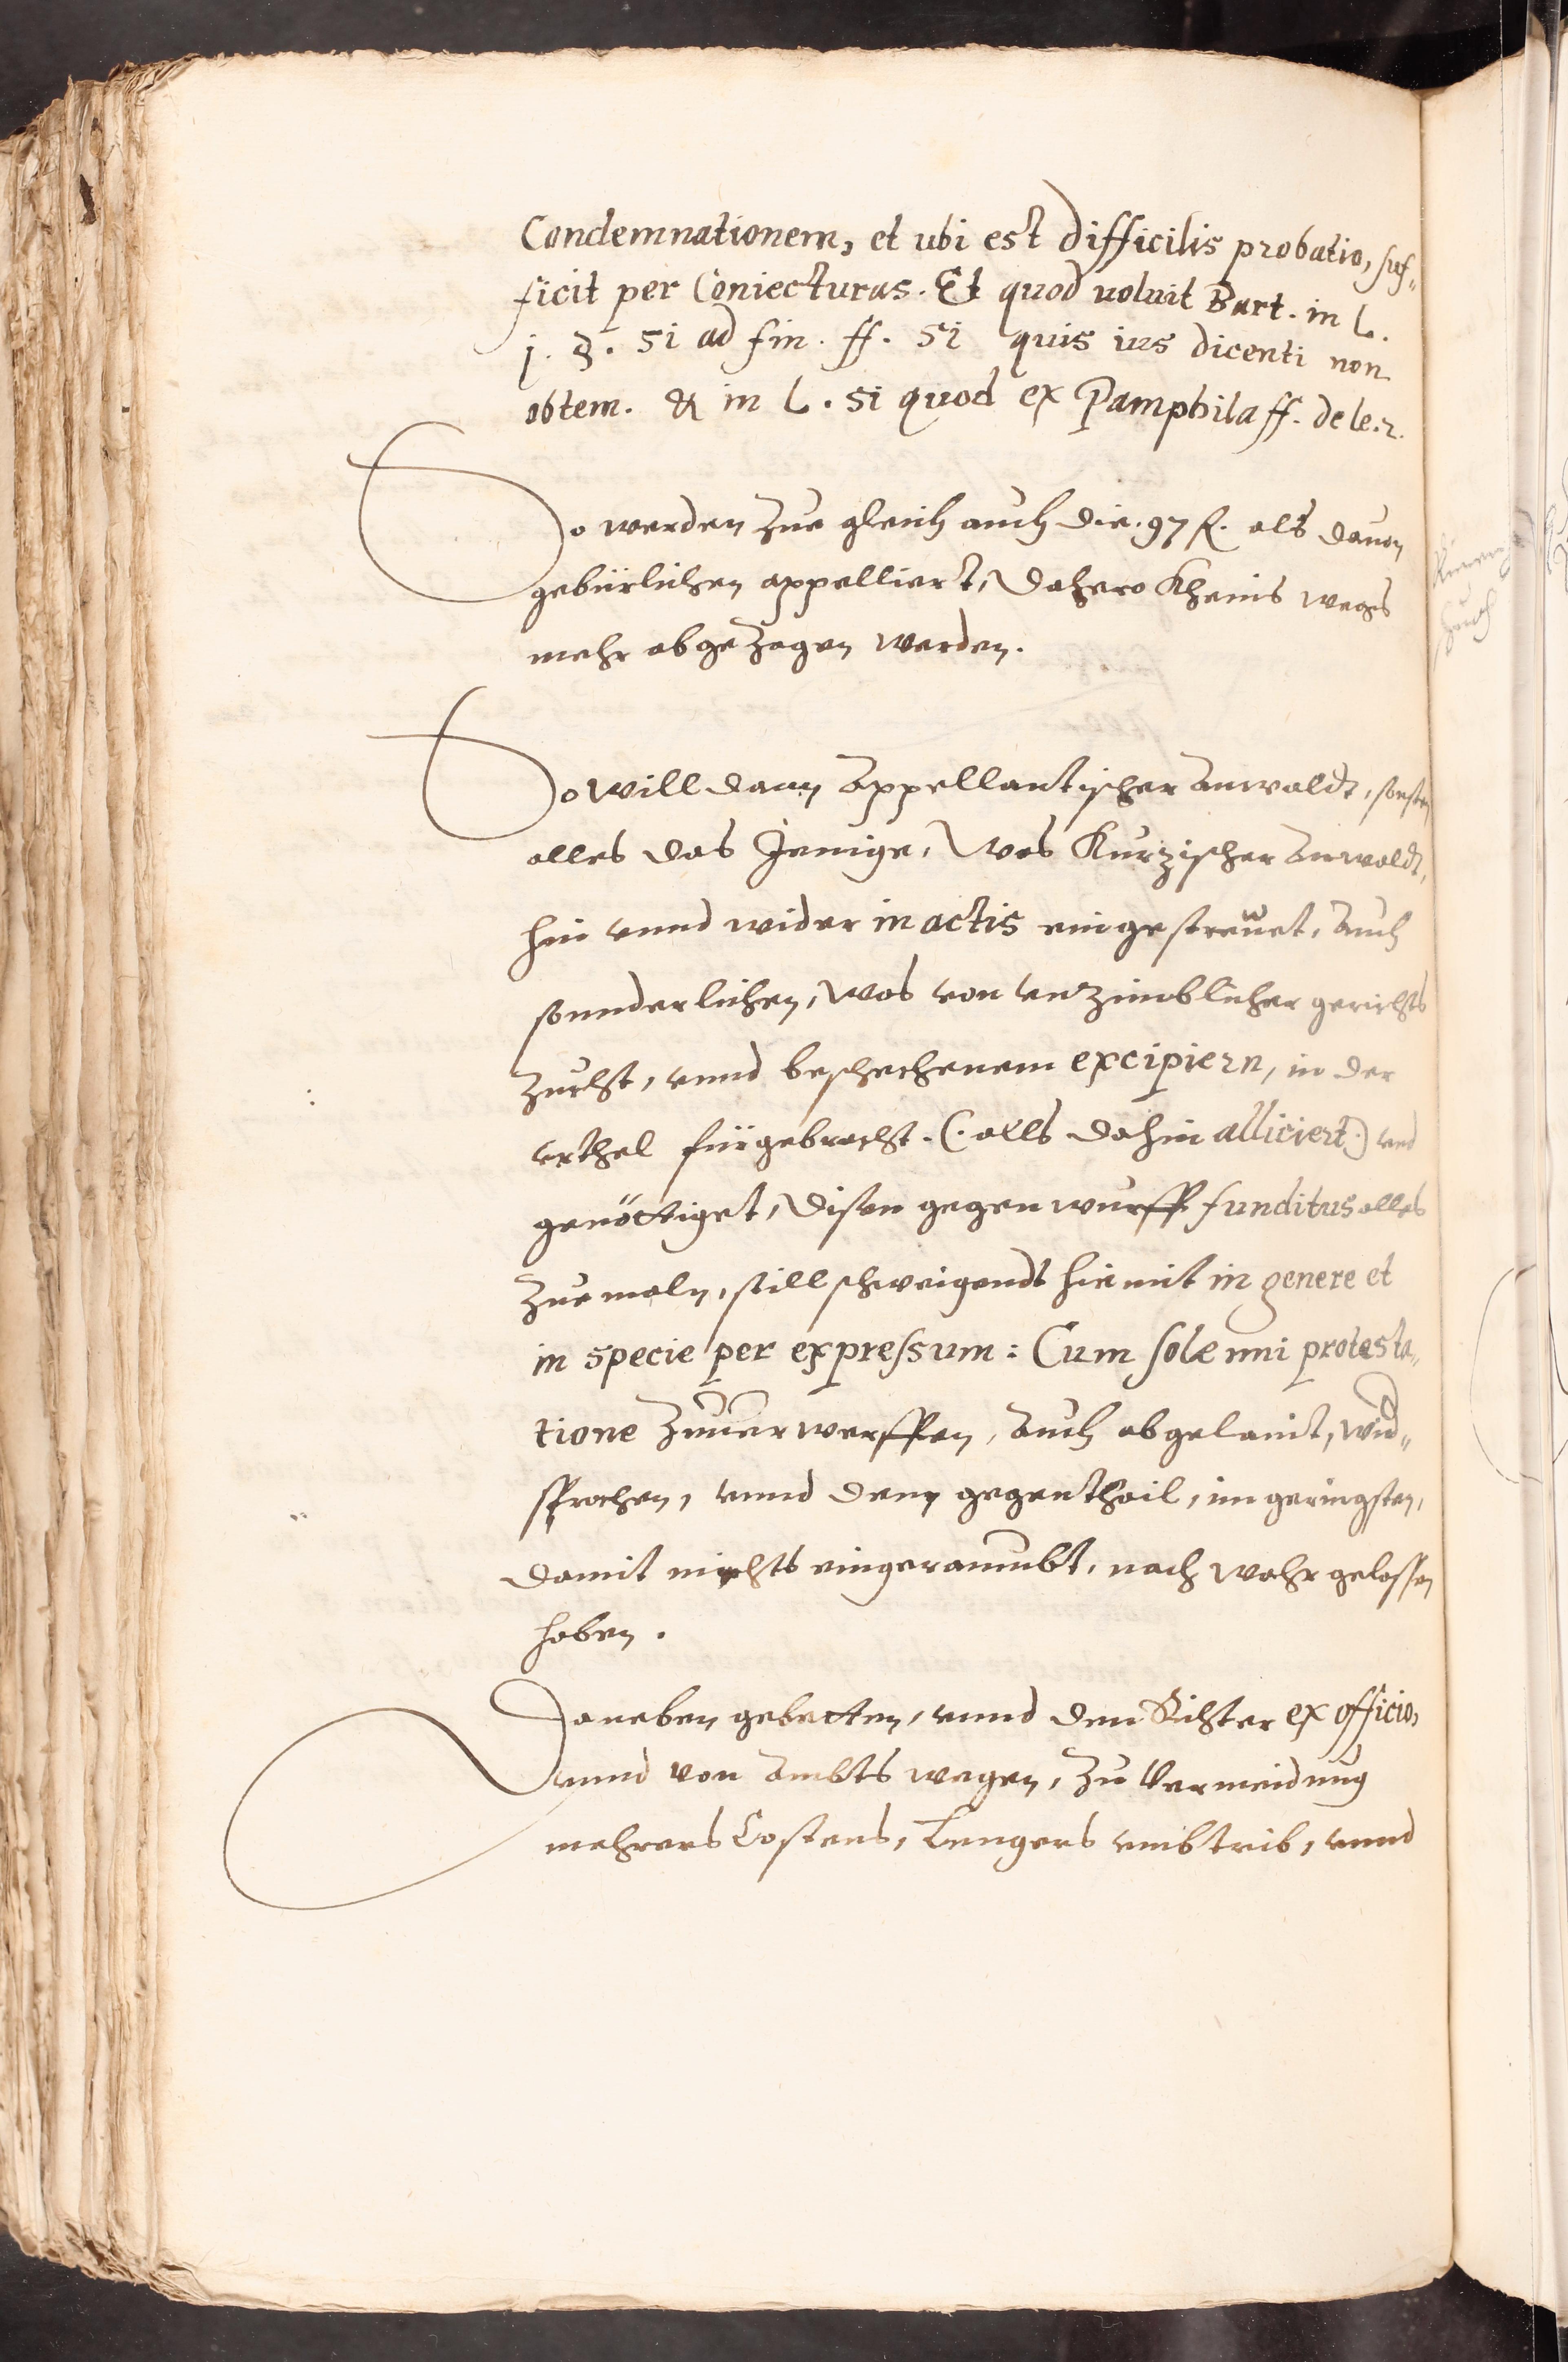 Condemnationem, et ubi est difficilis probatio, suf„
ficit per Coniecturas. Et quod uoluit Bart. in L.
j. §. si ad fin. ff. si quis ius dicenti non
obtem. & in L. si quod ex Pamphila ff. de le. 2.
So werden zue gleich auch die. 97 fl. als dauon
gebürlichen appelliert, dahero kheins wegs
mehr abgezogen werden.
So will dann Appellantischer Anwaldt, sonsten
alles das Jenige, Was Kurzischer Anwaldt,
hin vnnd wider in actis eingestrewet, Auch
sonnderlichen, Was von vnzimblicher gerichts
zucht, vnnd beschechenem excipiern, in der
vrthel fürgebracht. (. alls dahin alliciert .) vnd
genöttiget, disen gegenwurff funditus alles
zuemaln, stillschweigendt hiemit in genere et
in specie per expressum: Cum solemni protesta„
tione zuuerwerffen, Auch abgelaint, wid„
sprochen, vnnd dem gegenthail, im geringsten,
damit nichts eingeraumbt, noch wahr gelassen
haben.
Daneben gebetten, vnnd den Richter ex officio,
vnnd von Ambts wegen, zu Vermeidung
mehrers Costens, Lengers vmbtrib, vnnd